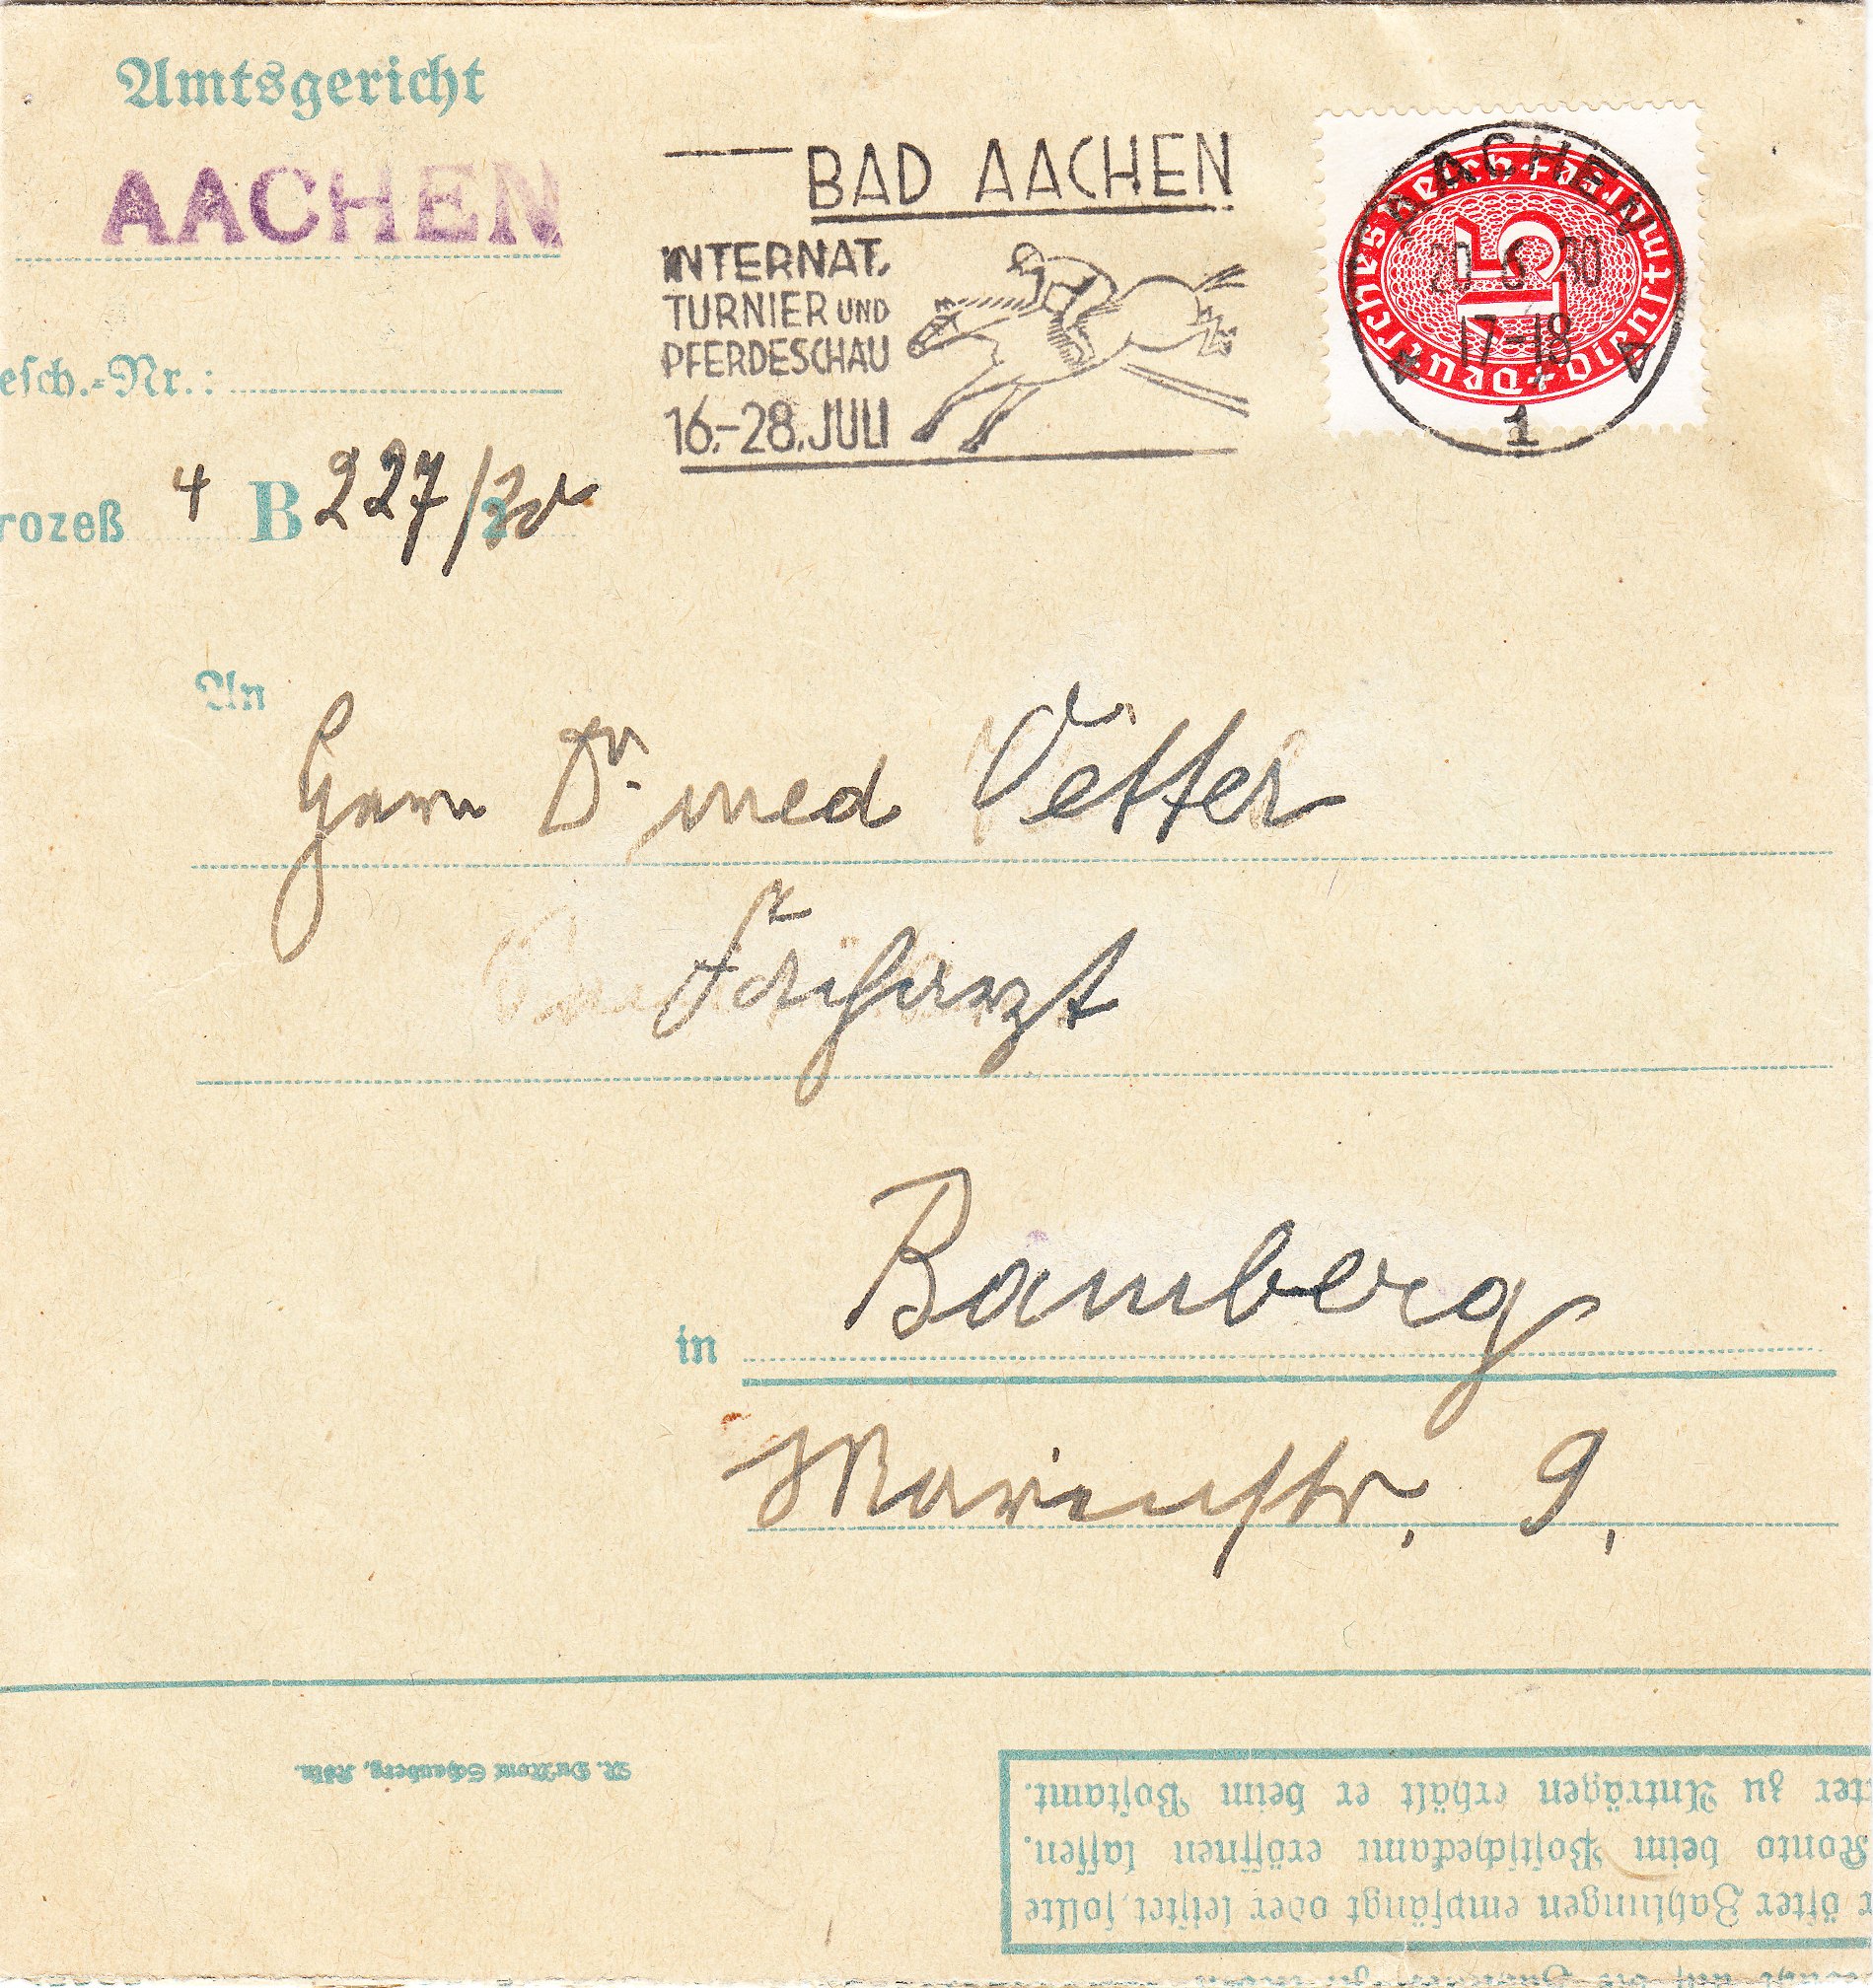 Amtsgericht
AACHEN
esch.-Nr.:
rozeß 4 B 227/30
BAD AACHEN
INTERNAT.
TURNIER UND
PFERDESCHAU
16.-28. JULI
Deutsches Reich
15
AACHEN
20 6 30
17-18
* 1
An
Herrn Dr. med Vetter
Facharzt
in Bamberg
Marienstr. 9.
M. DuMont Schauberg, Köln.
r öfter Zahlungen empfängt oder leistet, sollte
Konto beim Postscheckamt eröffnen lassen.
ter zu Anträgen erhält er beim Postamt.